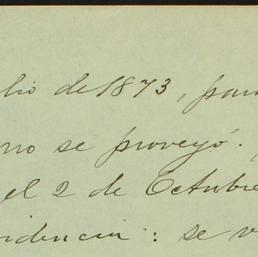 lio de 1873, para
no se proveyó.
el 2 de Octubre
idencia: se v